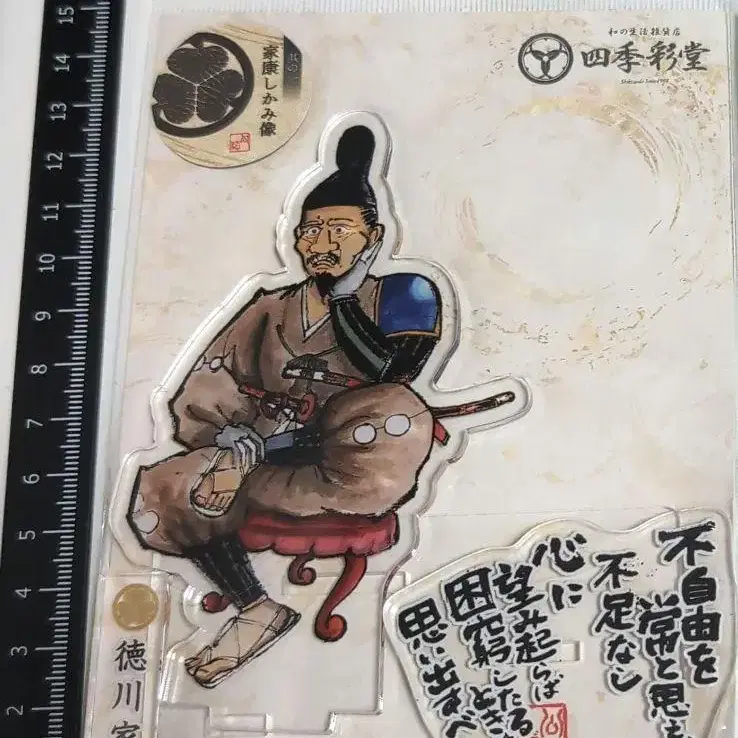 15
14
13
12
11
10
9
8
7
6
5
4
3
2
其の
家康しかみ像
和の生活雑貨店
四季彩堂
不自由を
常と思
不足なし
心に
望み起らば
困窮したる
とき
思い出すべ
徳川家